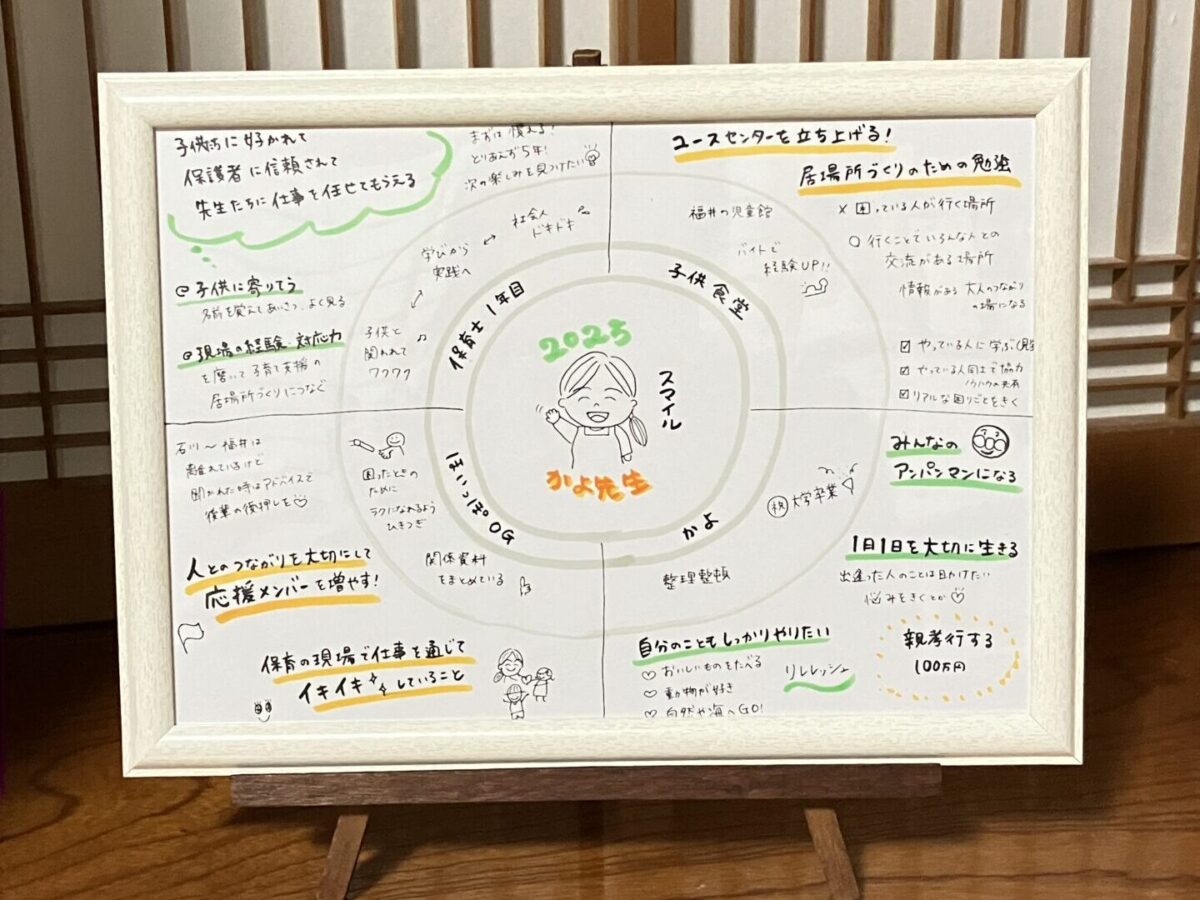 子供たちに好かれて
保護者に信頼されて
先生たちに仕事を任せてもらえる
まずは慣れる!
とりあえず5年!
次の楽しみを見つけたい
社会人
ドキドキ
学びから
実践へ
子供と
関われて
ワクワク
@子供に寄りそう
名前を覚えてあいさつ、よく見る
@現場の経験・対応力
を磨いて子育て支援の
居場所づくりにつなぐ
保育士1年目
ユースセンターを立ち上げる!
居場所づくりのための勉強
× 困っている人が行く場所
○ 行くことでいろんな人との
交流がある場所
情報がある 大人のつながり
の場になる
☑ やっている人に学ぶ
☑ やっている人同士で協力
ノウハウの共有
☑ リアルな困りごとをきく
福井の児童館
バイトで
経験UP!!
子供食堂
2025
スマイル
かよ先生
石川〜福井は
離れているけど
聞かれた時はアドバイスで
後輩の後押しを♡
困ったときの
ために
ラクになれるよう
ひきつぎ
ほいっぽOG
関係資料
をまとめている
人とのつながりを大切にして
応援メンバーを増やす!
保育の現場で仕事を通じて
イキイキしていること
かよ
㊗大学卒業
整理整頓
みんなの
アンパンマンになる
1日1日を大切に生きる
出逢った人のことは目かけたい
悩みをきくとか♡
自分のこともしっかりやりたい
♡ おいしいものをたべる
♡ 動物が好き
♡ 自然や海へGO!
リフレッシュ
親孝行する
100万円